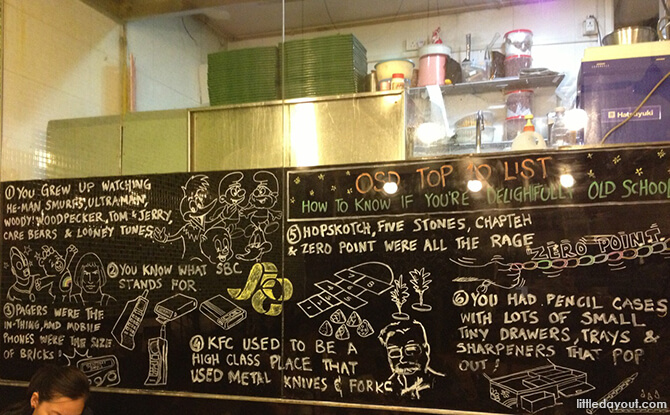 OSD TOP 10 LIST
HOW TO KNOW IF YOU'RE DELIGHTFULLY OLD SCHOOL
① YOU GREW UP WATCHING
HE-MAN, SMURFS, ULTRAMAN,
WOODY WOODPECKER, TOM & JERRY,
CARE BEARS & LOONEY TUNES
② YOU KNOW WHAT SBC
STANDS FOR
③ PAGERS WERE THE
IN-THING, AND MOBILE
PHONES WERE THE SIZE
OF BRICKS!
④ KFC USED TO BE A
HIGH CLASS PLACE THAT
USED METAL KNIVES & FORKS
⑤ HOPSKOTCH, FIVE STONES, CHAPTEH
& ZERO POINT WERE ALL THE RAGE
ZERO POINT
⑥ YOU HAD PENCIL CASES
WITH LOTS OF SMALL
TINY DRAWERS, TRAYS &
SHARPENERS THAT POP
OUT!
Hatsuyuki
littledayout.com